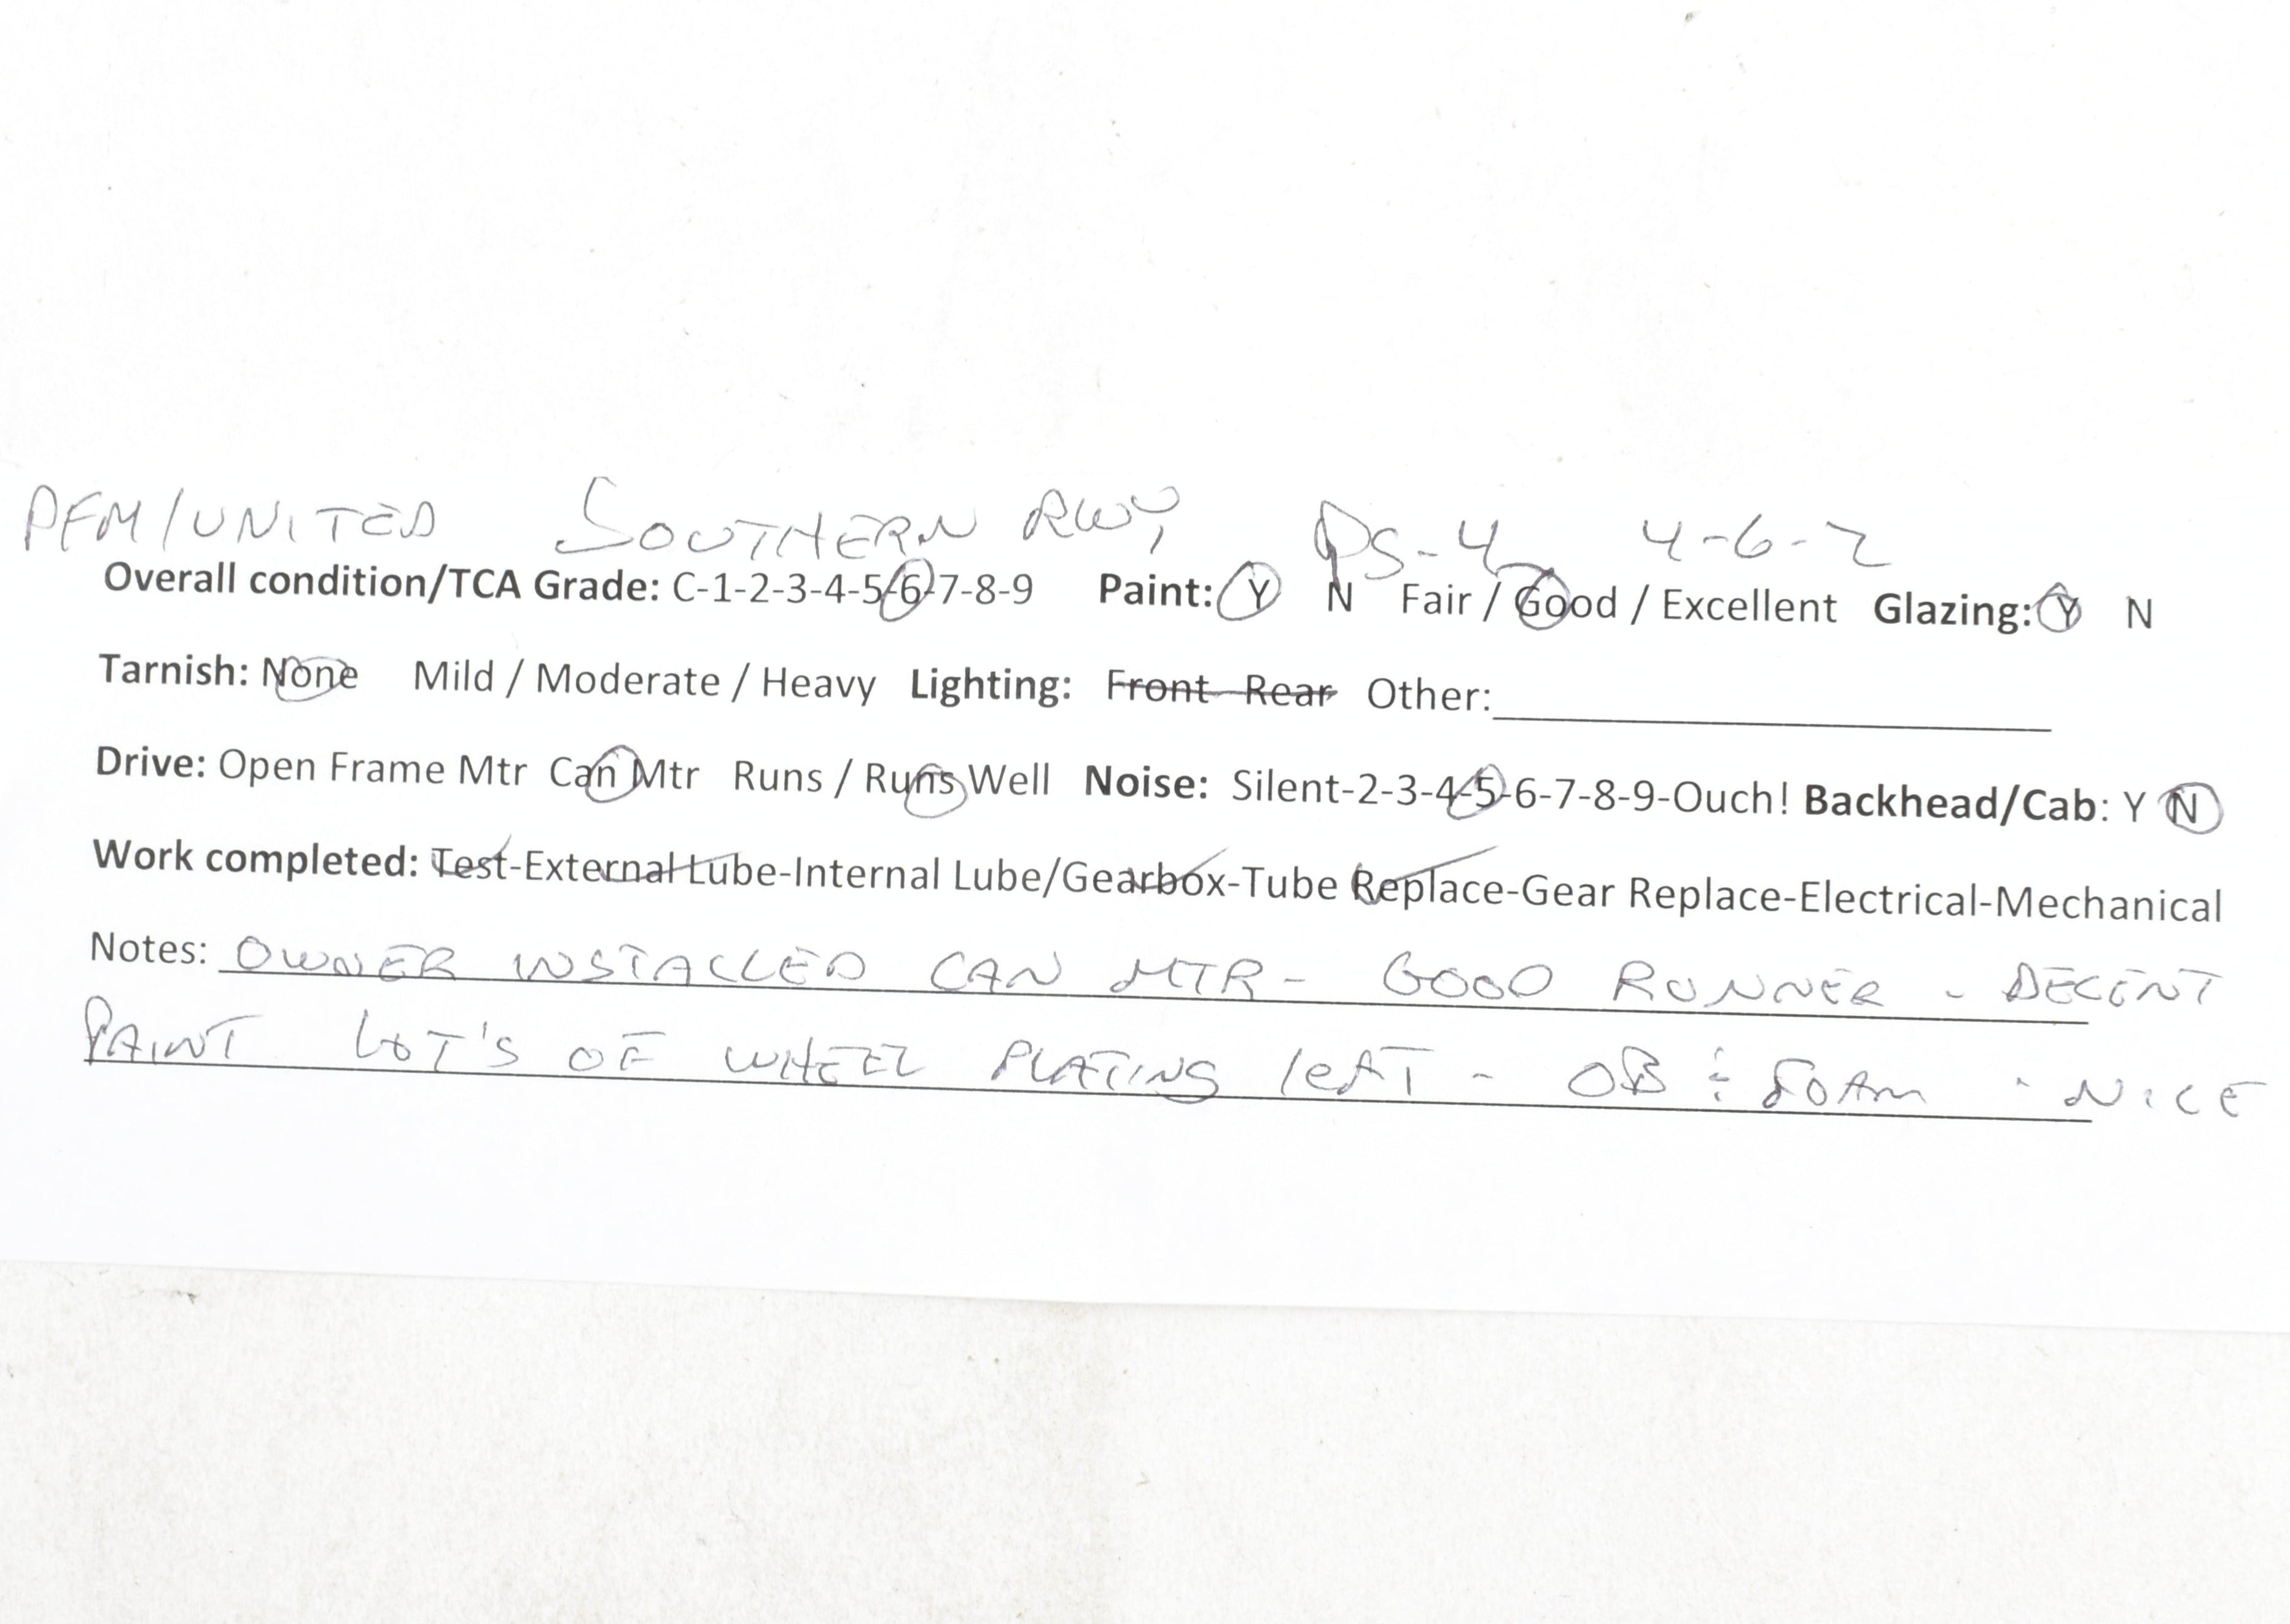 PFM/UNITED SOUTHERN RWY PS-4 4-6-2
Overall condition/TCA Grade: C-1-2-3-4-5-6-7-8-9 Paint: Y N Fair / Good / Excellent Glazing: Y N
Tarnish: None Mild / Moderate / Heavy Lighting: Front Rear Other:
Drive: Open Frame Mtr Can Mtr Runs / Runs Well Noise: Silent-2-3-4-5-6-7-8-9-Ouch! Backhead/Cab: Y N
Work completed: Test-External Lube-Internal Lube/Gearbox-Tube Replace-Gear Replace-Electrical-Mechanical
Notes: OWNER INSTALLED CAN MTR - GOOD RUNNER - DECENT
PAINT LOT'S OF WHEEL PLATING LEFT - OB & FOAM - NICE